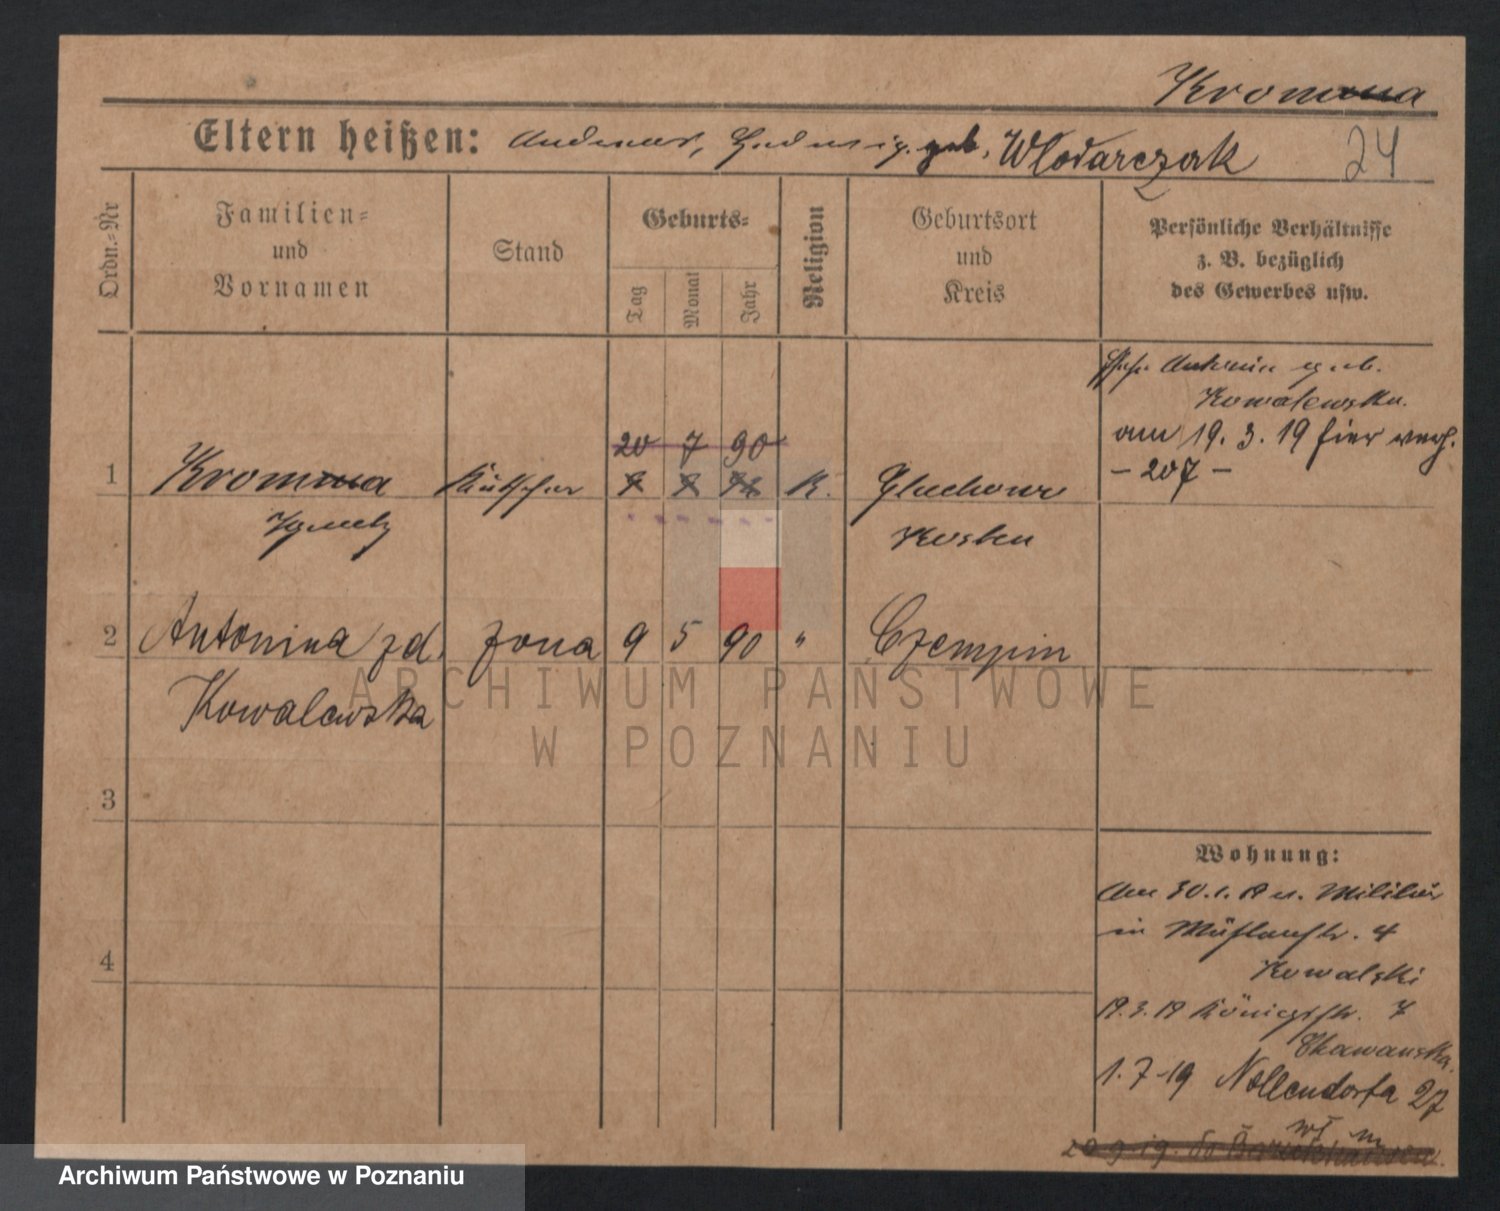 Kromma
Eltern heißen: Andreas, Hedwig geb. Wlodarczak 24
Ordn.=Nr
Familien=
und
Vornamen
Stand
Geburts=
Tag
Monat
Jahr
Religion
Geburtsort
und
Kreis
Persönliche Verhältnisse
z. B. bezüglich
des Gewerbes usw.
geb.
Kowalewska.
am 19. 3. 19 hier verh.
- 207 -
20 7 90
1 Kromma Kutscher K. Gluchowo
Ignatz Kosten
2 Antonina zd. żona 9 5 90 " Czempin
Kowalewska
ARCHIWUM PAŃSTWOWE
W POZNANIU
3
4
Wohnung:
Am 30. 1. 19 v. Militär
in Mühlenstr. 4
Kowalski
19.3.19 Königstr. 7
1.7-19 Nollendorfa 27
Archiwum Państwowe w Poznaniu